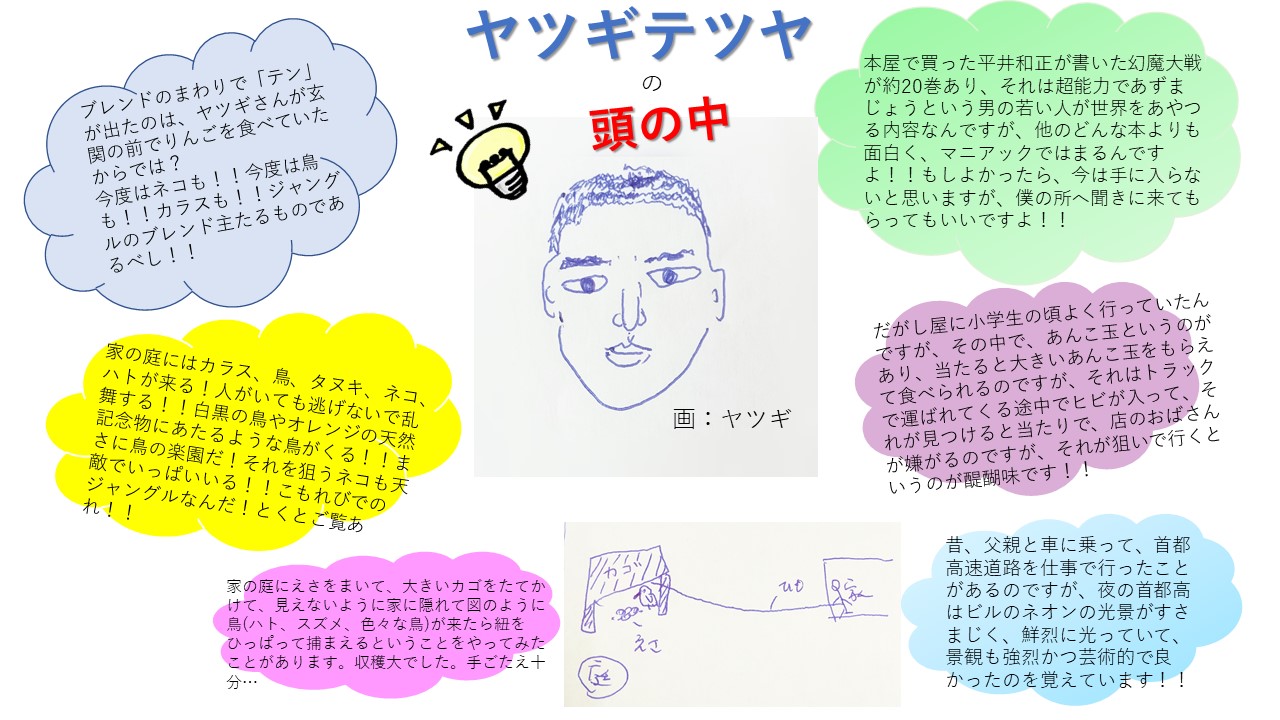 ヤツギテツヤ
の
頭の中
ブレンドのまわりで「テン」
が出たのは、ヤツギさんが玄
関の前でりんごを食べていた
からでは？
今度はネコも！！今度は鳥
も！！カラスも！！ジャング
ルのブレンド主たるものであ
るべし！！
本屋で買った平井和正が書いた幻魔大戦
が約20巻あり、それは超能力であずま
じょうという男の若い人が世界をあやつ
る内容なんですが、他のどんな本よりも
面白く、マニアックではまるんです
よ！！もしよかったら、今は手に入らな
いと思いますが、僕の所へ聞きに来ても
らってもいいですよ！！
画：ヤツギ
家の庭にはカラス、鳥、タヌキ、ネコ、
ハトが来る！人がいても逃げないで乱
舞する！！白黒の鳥やオレンジの天然
記念物にあたるような鳥がくる！！ま
さに鳥の楽園だ！それを狙うネコも天
敵でいっぱいいる！！こもれびでの
ジャングルなんだ！とくとご覧あ
れ！！
だがし屋に小学生の頃よく行っていたん
ですが、その中で、あんこ玉というのが
あり、当たると大きいあんこ玉をもらえ
て食べられるのですが、それはトラック
で運ばれてくる途中でヒビが入って、そ
れが見つけると当たりで、店のおばさん
が嫌がるのですが、それが狙いで行くと
いうのが醍醐味です！！
家の庭にえさをまいて、大きいカゴをたてか
けて、見えないように家に隠れて図のように
鳥(ハト、スズメ、色々な鳥)が来たら紐を
ひっぱって捕まえるということをやってみた
ことがあります。収穫大でした。手ごたえ十
分…
カゴ
ひも
えさ
庭
昔、父親と車に乗って、首都
高速道路を仕事で行ったこと
があるのですが、夜の首都高
はビルのネオンの光景がすさ
まじく、鮮烈に光っていて、
景観も強烈かつ芸術的で良
かったのを覚えています！！